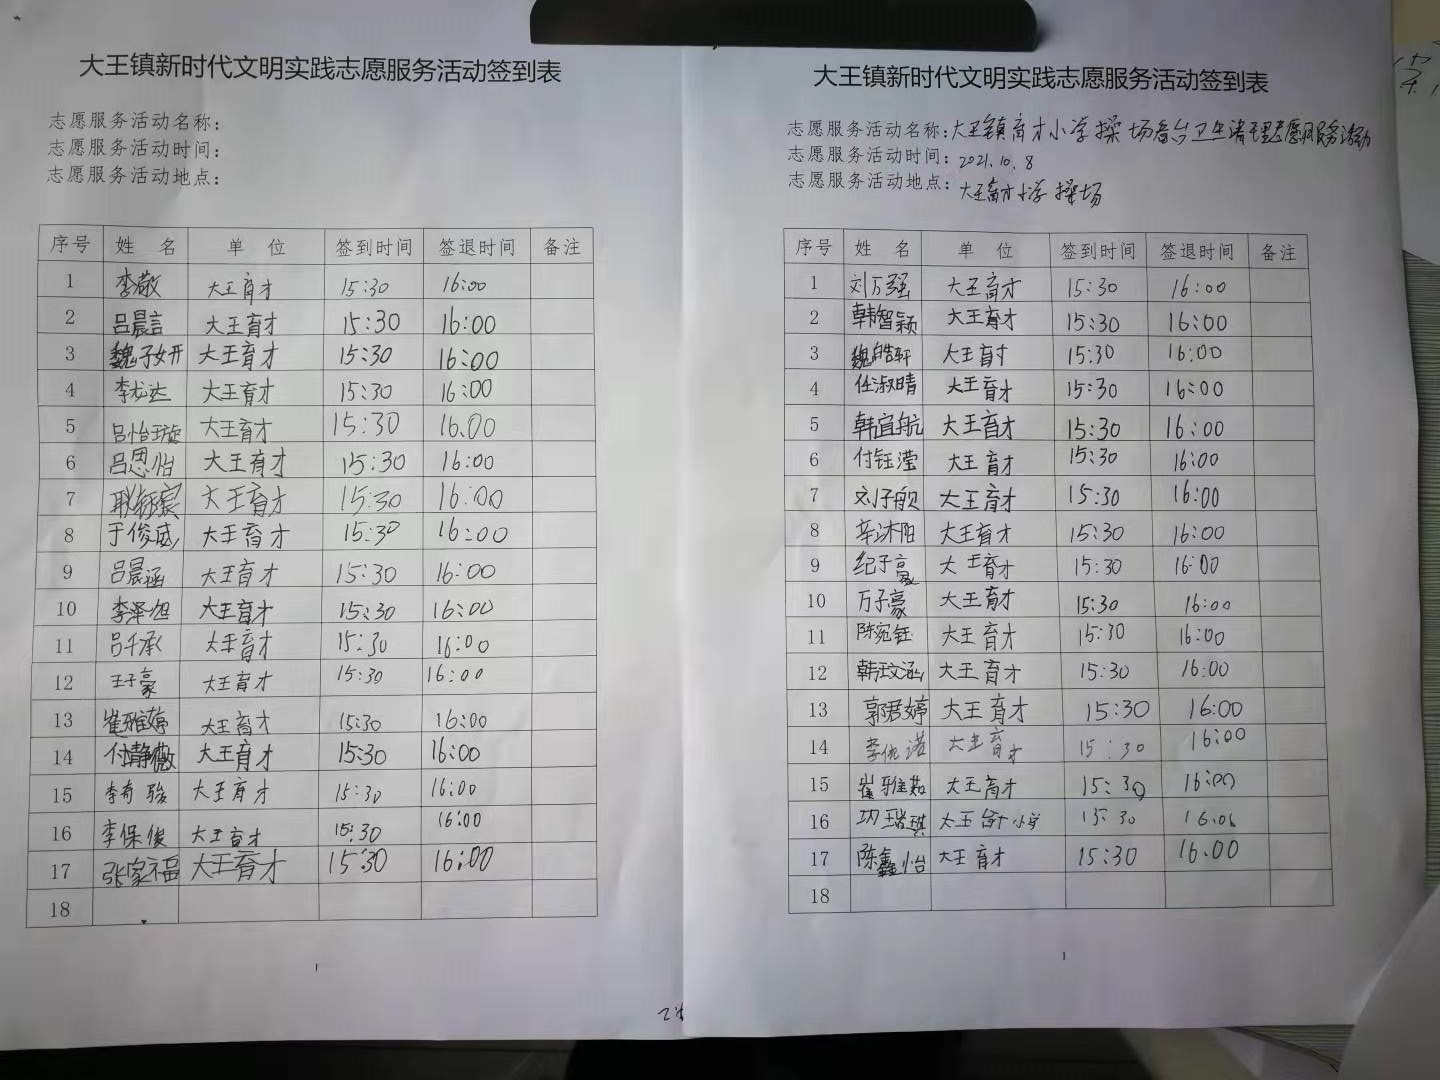 大王镇新时代文明实践志愿服务活动签到表
志愿服务活动名称：
志愿服务活动时间：
志愿服务活动地点：
序号 姓 名 单 位 签到时间 签退时间 备注
1 李敬 大王育才 15:30 16:00
2 吕晨言 大王育才 15:30 16:00
3 魏子妍 大王育才 15:30 16:00
4 李龙达 大王育才 15:30 16:00
5 吕怡璇 大王育才 15:30 16:00
6 吕思怡 大王育才 15:30 16:00
7 大王育才 15:30 16:00
8 于俊威 大王育才 15:30 16:00
9 吕晨涵 大王育才 15:30 16:00
10 李泽旭 大王育才 15:30 16:00
11 吕千承 大王育才 15:30 16:00
12 王子豪 大王育才 15:30 16:00
13 崔雅婷 大王育才 15:30 16:00
14 付静薇 大王育才 15:30 16:00
15 李奇骏 大王育才 15:30 16:00
16 李保俊 大王育才 15:30 16:00
17 张家福 大王育才 15:30 16:00
18
1
大王镇新时代文明实践志愿服务活动签到表
志愿服务活动名称：大王镇育才小学操场看台卫生清理志愿服务活动
志愿服务活动时间：2021.10.8
志愿服务活动地点：大王育才小学操场
序号 姓 名 单 位 签到时间 签退时间 备注
1 刘万强 大王育才 15:30 16:00
2 韩智颖 大王育才 15:30 16:00
3 魏皓轩 大王育才 15:30 16:00
4 任淑晴 大王育才 15:30 16:00
5 韩宜航 大王育才 15:30 16:00
6 付钰滢 大王育才 15:30 16:00
7 刘子舰 大王育才 15:30 16:00
8 辛沐阳 大王育才 15:30 16:00
9 纪子豪 大王育才 15:30 16:00
10 万子豪 大王育才 15:30 16:00
11 陈宛钰 大王育才 15:30 16:00
12 韩玟涵 大王育才 15:30 16:00
13 郭君婷 大王育才 15:30 16:00
14 李优诺 大王育才 15:30 16:00
15 崔雅茹 大王育才 15:30 16:00
16 大王育才小学 15:30 16:00
17 陈鑫怡 大王育才 15:30 16:00
18
1